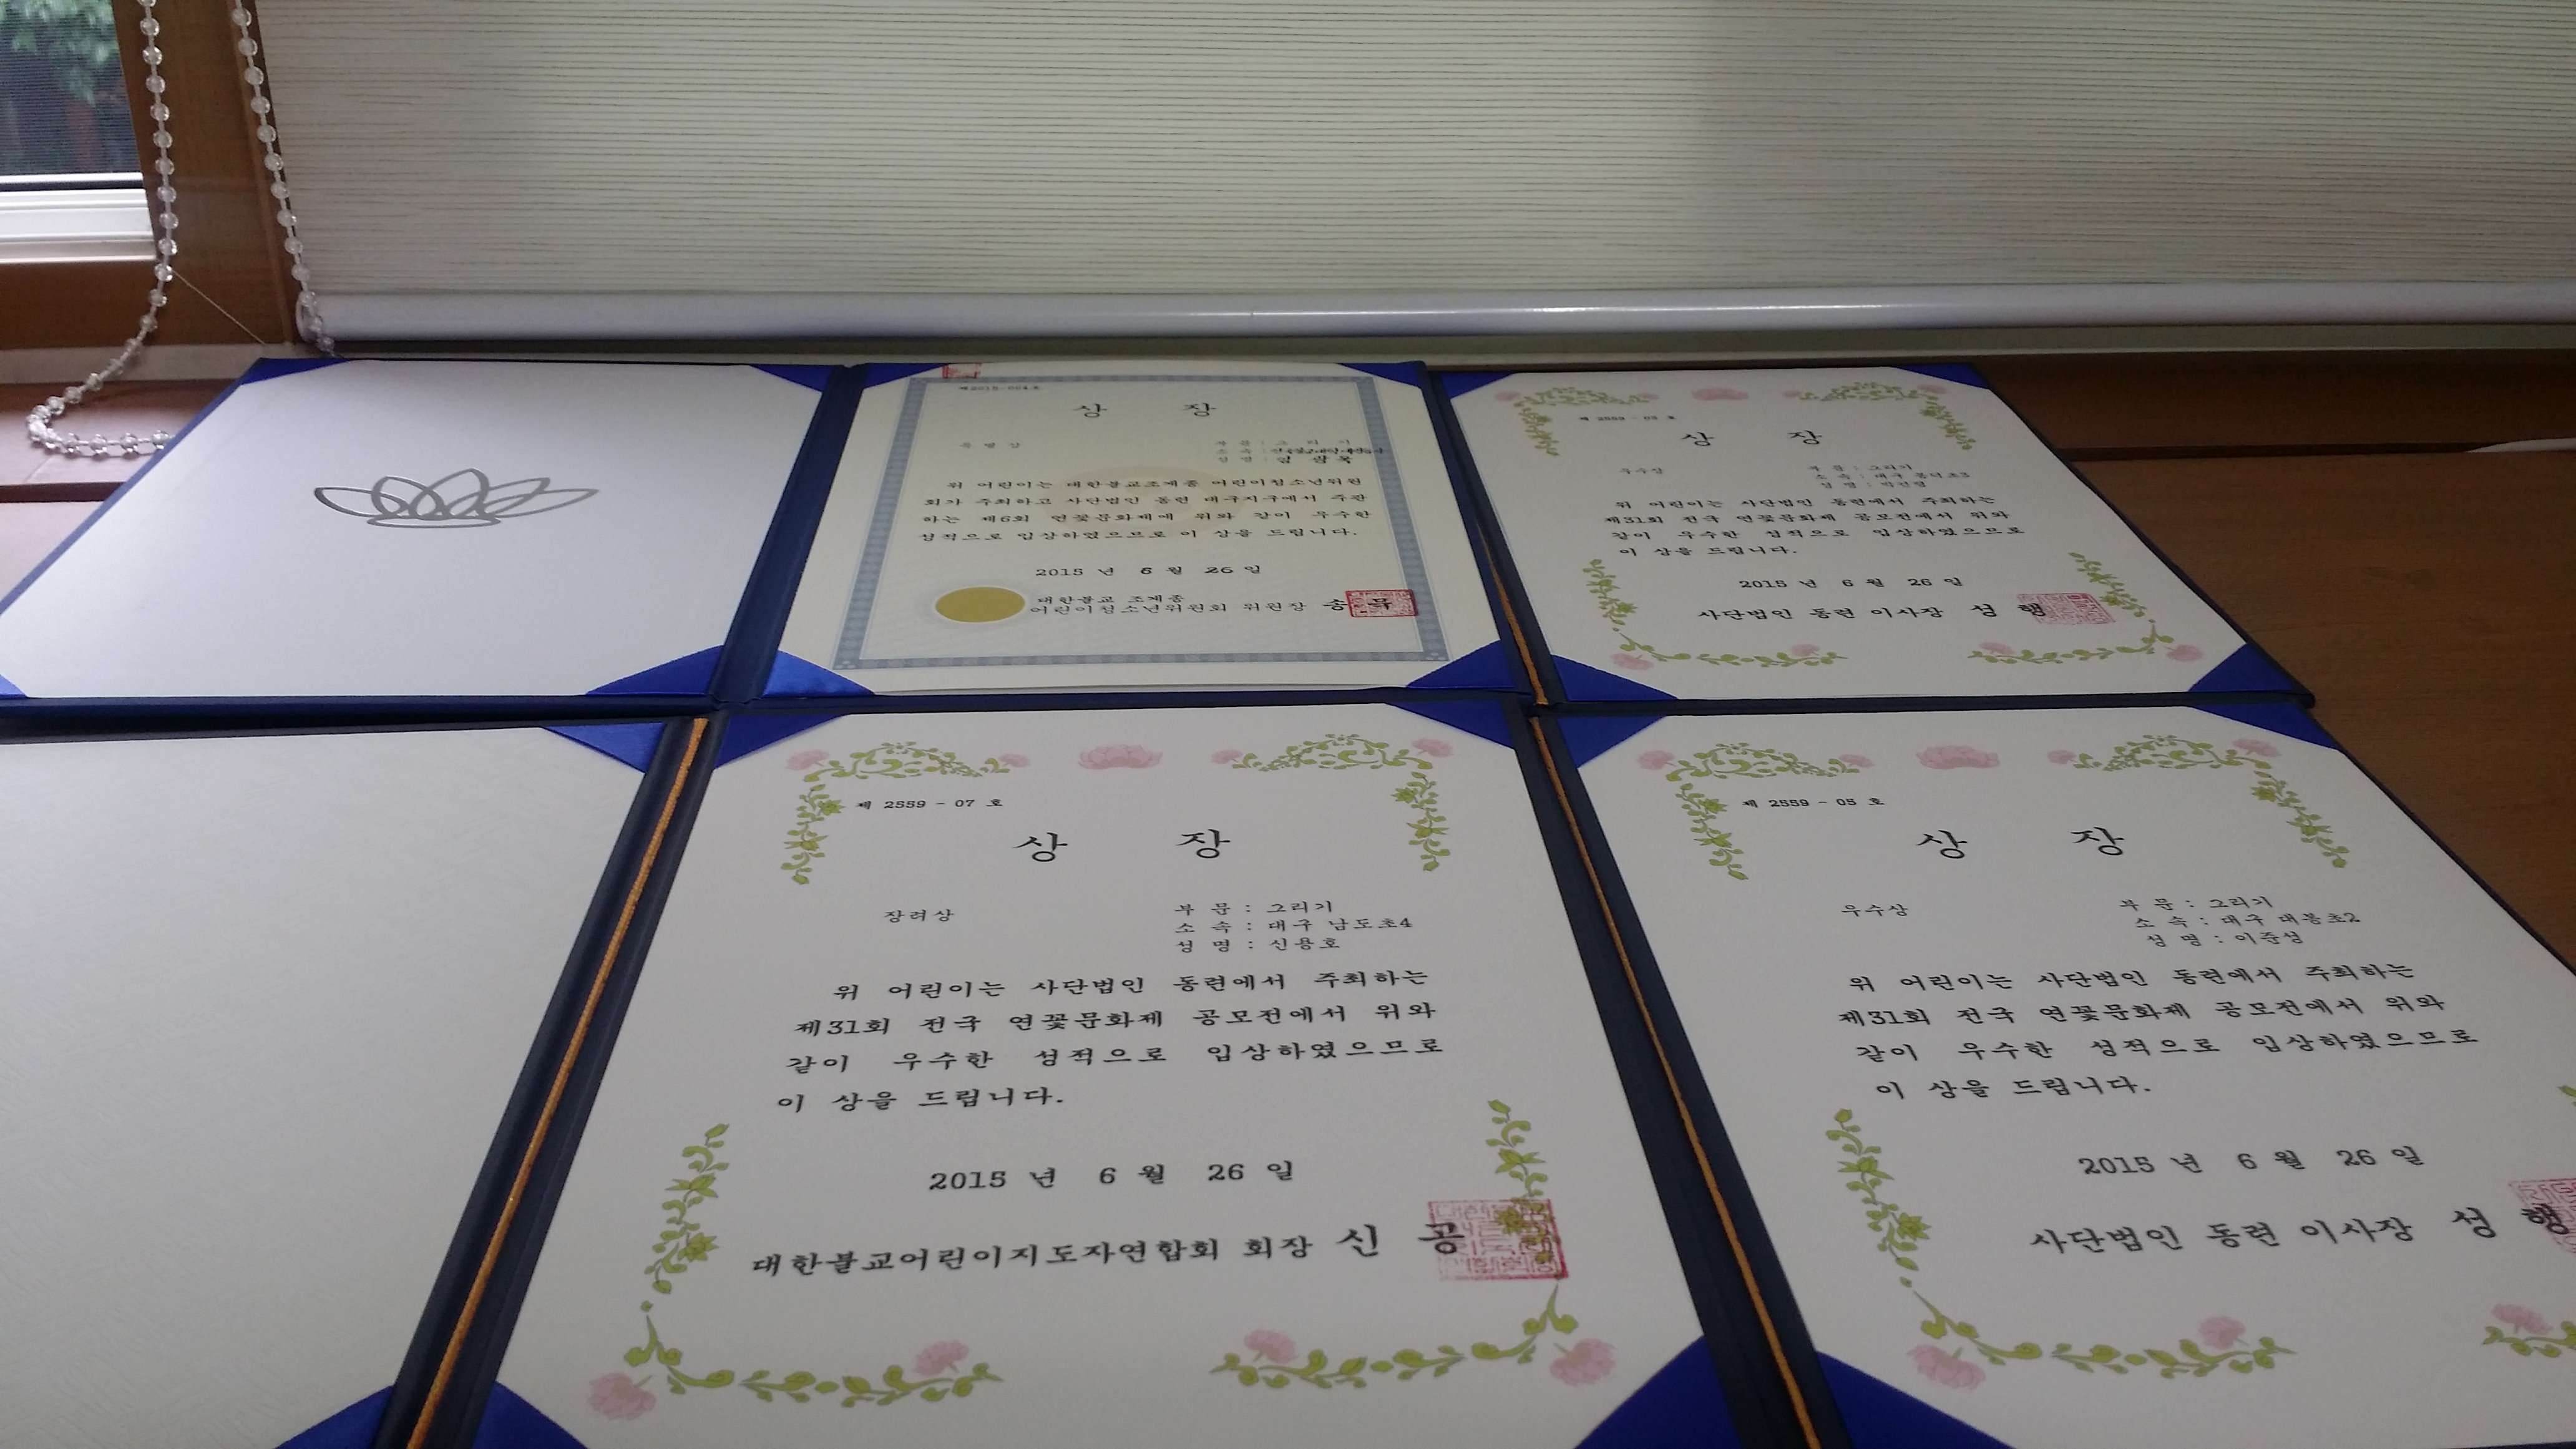 제2015-004호
상 장
특별상
부 문 : 그 리 기
위 어린이는 대한불교조계종 어린이청소년위원
회가 주최하고 사단법인 동련 대구지구에서 주관
하는 제6회 연꽃문화제에 위와 같이 우수한
성적으로 입상하였으므로 이 상을 드립니다.
2015 년 6 월 26 일
대한불교 조계종
어린이청소년위원회 위원장
제 2559 - 03 호
상 장
우수상
부 문 : 그리기
소 속 : 대구
성 명 :
위 어린이는 사단법인 동련에서 주최하는
제31회 전국 연꽃문화제 공모전에서 위와
같이 우수한 성적으로 입상하였으므로
이 상을 드립니다.
2015 년 6 월 26 일
사단법인 동련 이사장 성 행
제 2559 - 07 호
상 장
장려상
부 문 : 그리기
소 속 : 대구 남도초4
성 명 : 신용호
위 어린이는 사단법인 동련에서 주최하는
제31회 전국 연꽃문화제 공모전에서 위와
같이 우수한 성적으로 입상하였으므로
이 상을 드립니다.
2015 년 6 월 26 일
대한불교어린이지도자연합회 회장 신 공
제 2559 - 05 호
상 장
우수상
부 문 : 그리기
소 속 : 대구 대봉초2
성 명 : 이준성
위 어린이는 사단법인 동련에서 주최하는
제31회 전국 연꽃문화제 공모전에서 위와
같이 우수한 성적으로 입상하였으므로
이 상을 드립니다.
2015 년 6 월 26 일
사단법인 동련 이사장 성 행